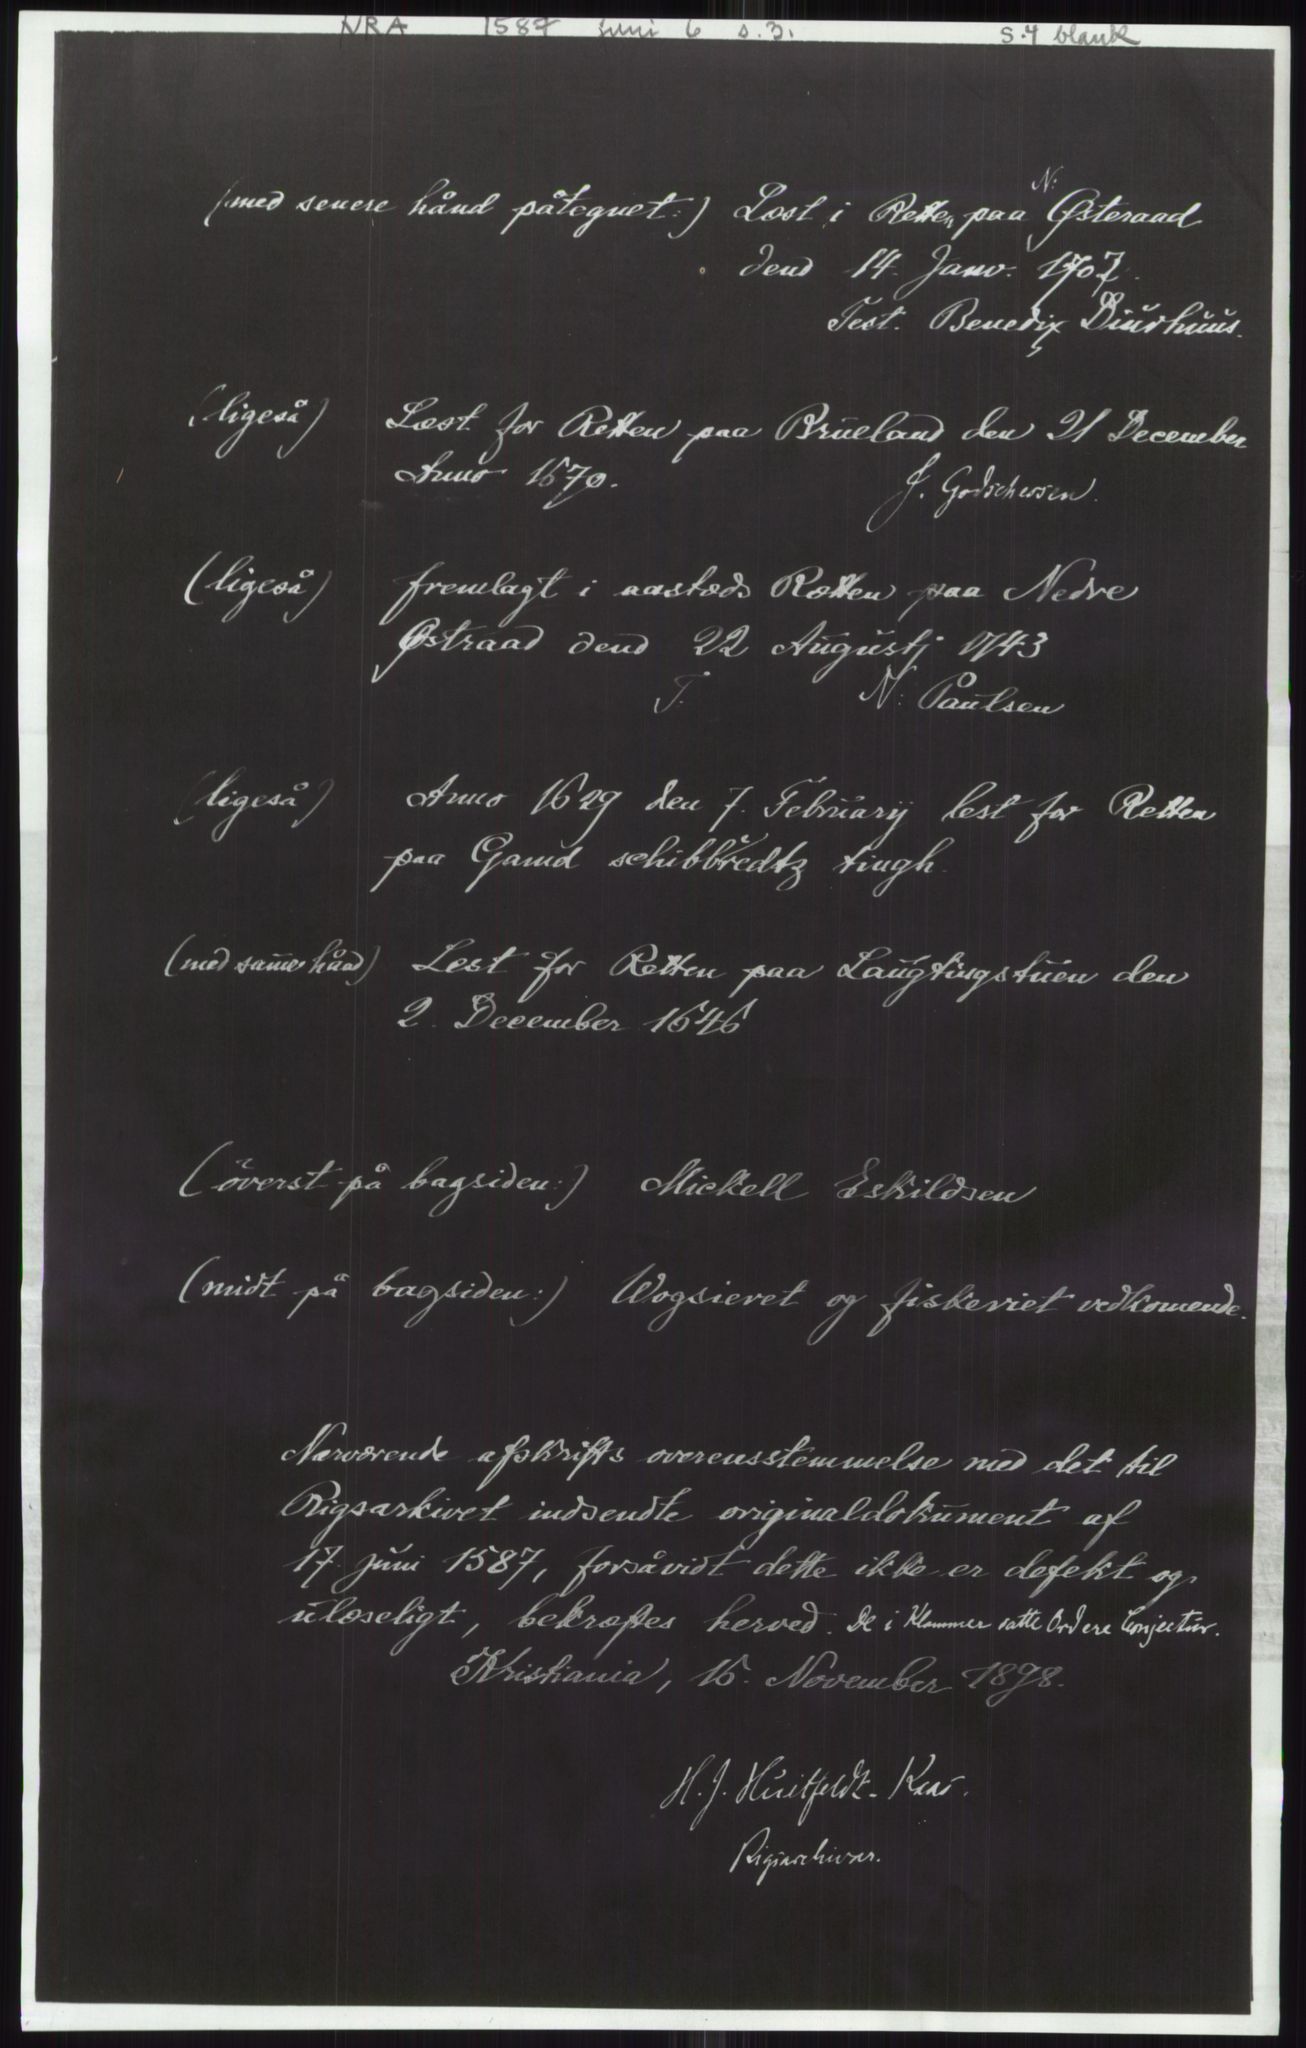 NRA 1587 juni 6 s. 3. s. 4 blank
(med senere hånd påtegnet:) Læst i Retten paa N: Østeraad
dend 14. Janv. 1707.
Test. Benedix Diurhuus.
(ligeså) Læst for Retten paa Brueland den 21 December
Anno 1670. J.
(ligeså) fremlagt i aasteds Rætten paa Nedre
Østraad dend 22 Augustj 1743
T. N: Paulsen
(ligeså) Anno 1629 den 7. Februarij lest for Retten
paa Gamd schibbredtz tingh.
(med samme hånd) Lest for Retten paa Laugtingstuen den
2. December 1646
(överst på bagsiden:) Mickell Eskildsen
(midt på bagsiden:) Wogsieret og fiskeriet vedkomende.
Nærværende afskrifts overensstemmelse med det til
Rigsarkivet indsendte originaldokument af
17. juni 1587, forsåvidt dette ikke er defekt og
ulæseligt, bekræftes herved. De i Klammer satte Ord ere Conjectur.
Kristiania, 16. November 1898.
H. J. Huitfeldt-Kaas.
Rigsarchivar.